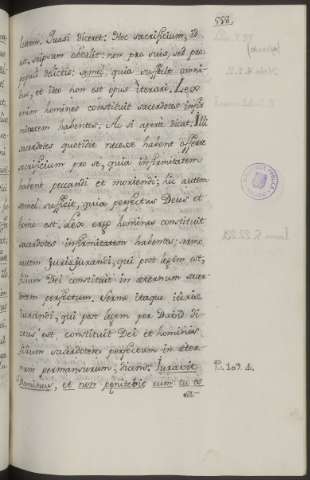 558.
lutem. Quasi diceret: Hoc sacrificium, id
est, seipsum obtulit: non pro suis, sed pro
populi delictis; semel, quia sufficit omni-
bus, et ideo non est opus iterari. Lex
enim homines constituit sacerdotes infir-
mitatem habentes. Ac si aperte dicat: Illi
sacerdotes quotidie necesse habent offerre
sacrificium pro se, quia infirmitatem
habent peccandi et moriendi; hic autem
semel sufficit, quia perfectus Deus et
homo est. Lex ergo homines constituit
sacerdotes infirmitatem habentes; sermo
autem jurisjurandi, qui post legem est,
filium Dei constituit in aeternum sacer-
dotem perfectum. Sermo itaque
jurandi, qui post legem per David di-
est, constituit Dei et hominis
filium sacerdotem perfectum in aeter-
num permansurum, dicens: Juravit
Dominus, et non penitebit eum tu es
Ps. 109. 4.